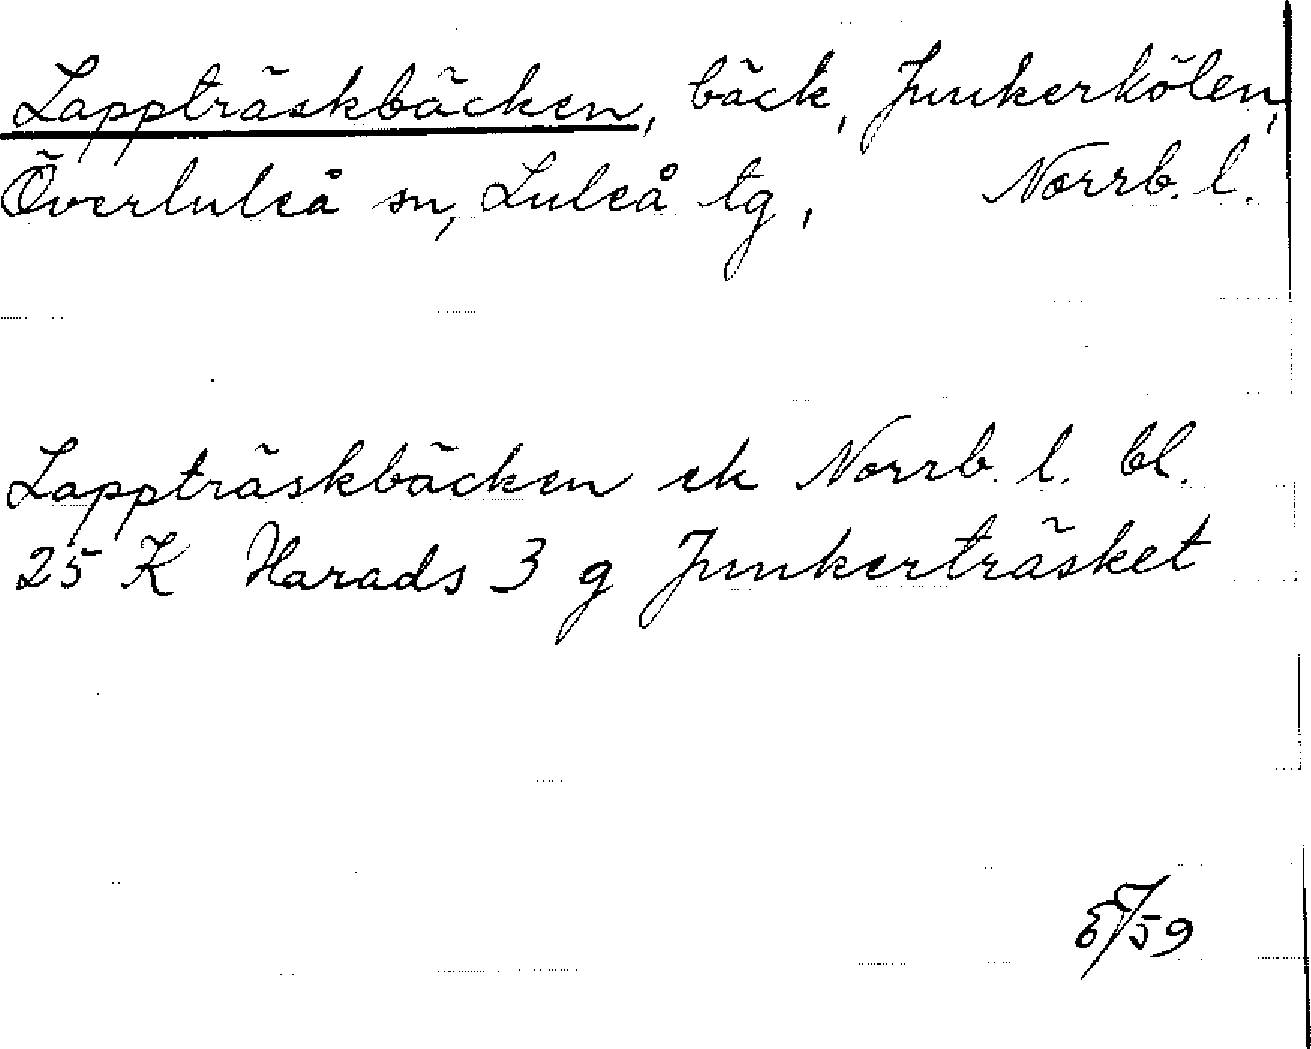 Lappträskbäcken, bäck, Junkerkölen,
Överluleå sn, Luleå tg, Norrb. l.
Lappträskbäcken ek Norrb. l. bl.
25 K Harads 3 g Junkerträsket